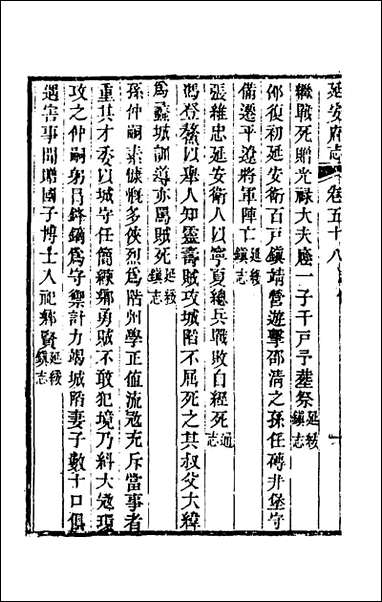 延安府志 卷五十八
繼戰死贈光祿大夫廕一子千戶予塟祭延綏鎮志
邵復初延安衛百戶鎮靖營遊擊邵清之孫任磚井堡守
備遷平遼將軍陣亡延綏鎮志
張維忠延安衛人以寧夏總兵戰敗自經死通志
馮登鰲以舉人知靈壽賊攻城陷不屈死之其叔父大緯
爲蠡城訓導亦罵賊死延綏鎮志
孫仲嗣素慷慨多俠烈爲階州學正值流寇充斥當事者
重其才委以城守任簡練鄉勇賊不敢犯境乃糾大寇環
攻之仲嗣躬冒鋒鏑爲守禦計力竭城陷妻子數十口俱
遇害事聞贈國子博士入祀鄉賢延綏鎮志